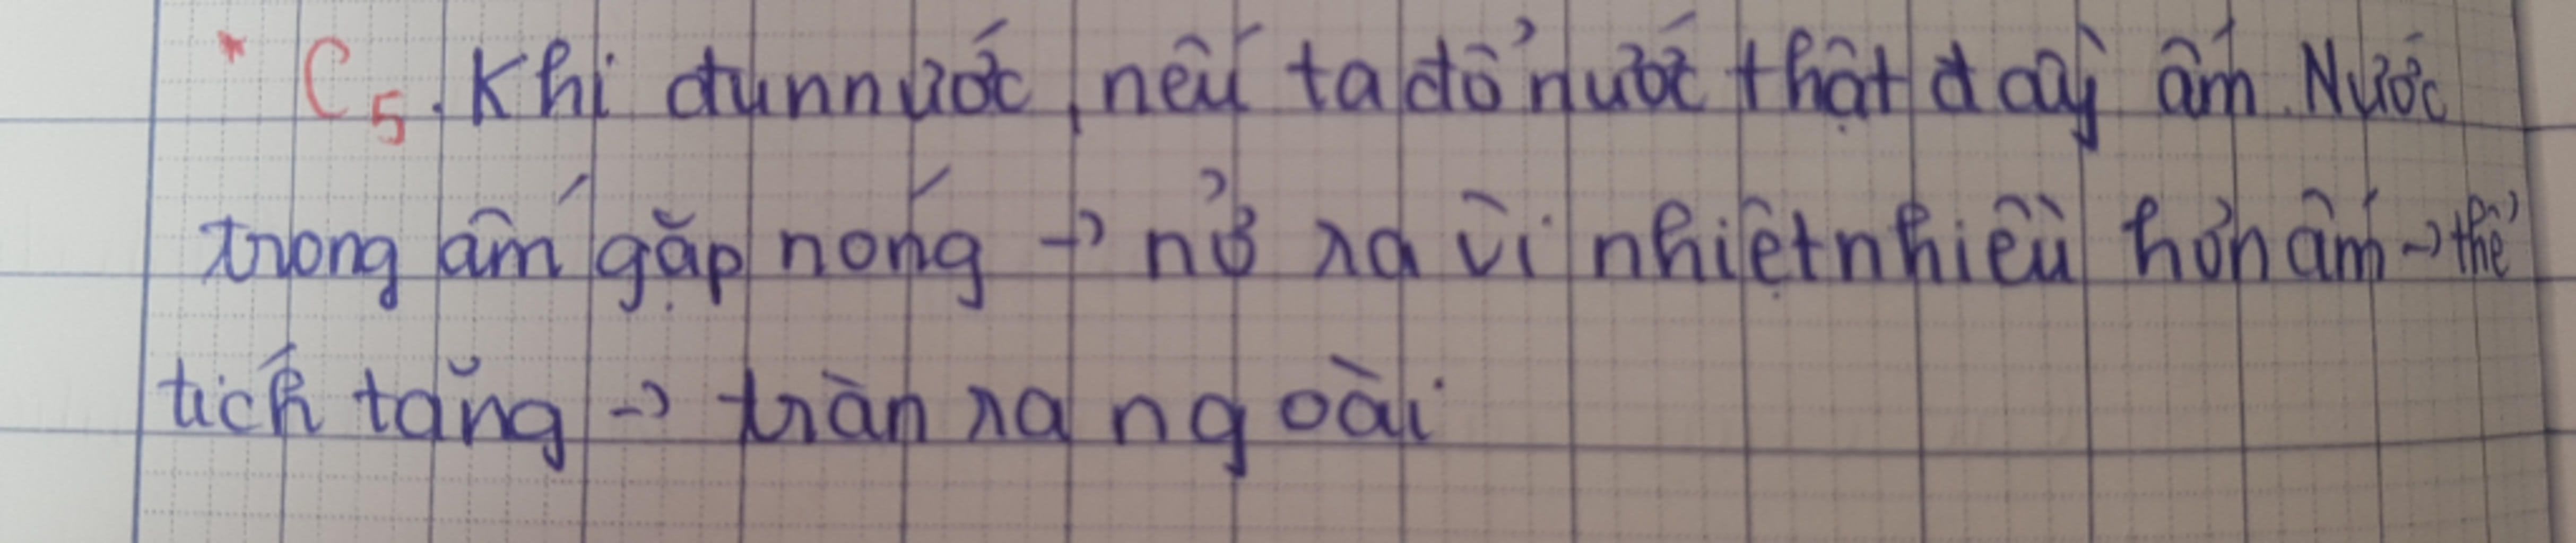 * C5. Khi đun nước, nếu ta đổ nước thật đầy ấm. Nước
trong ấm gặp nóng → nở ra vì nhiệt nhiều hơn ấm → thể
tích tăng → tràn ra ngoài